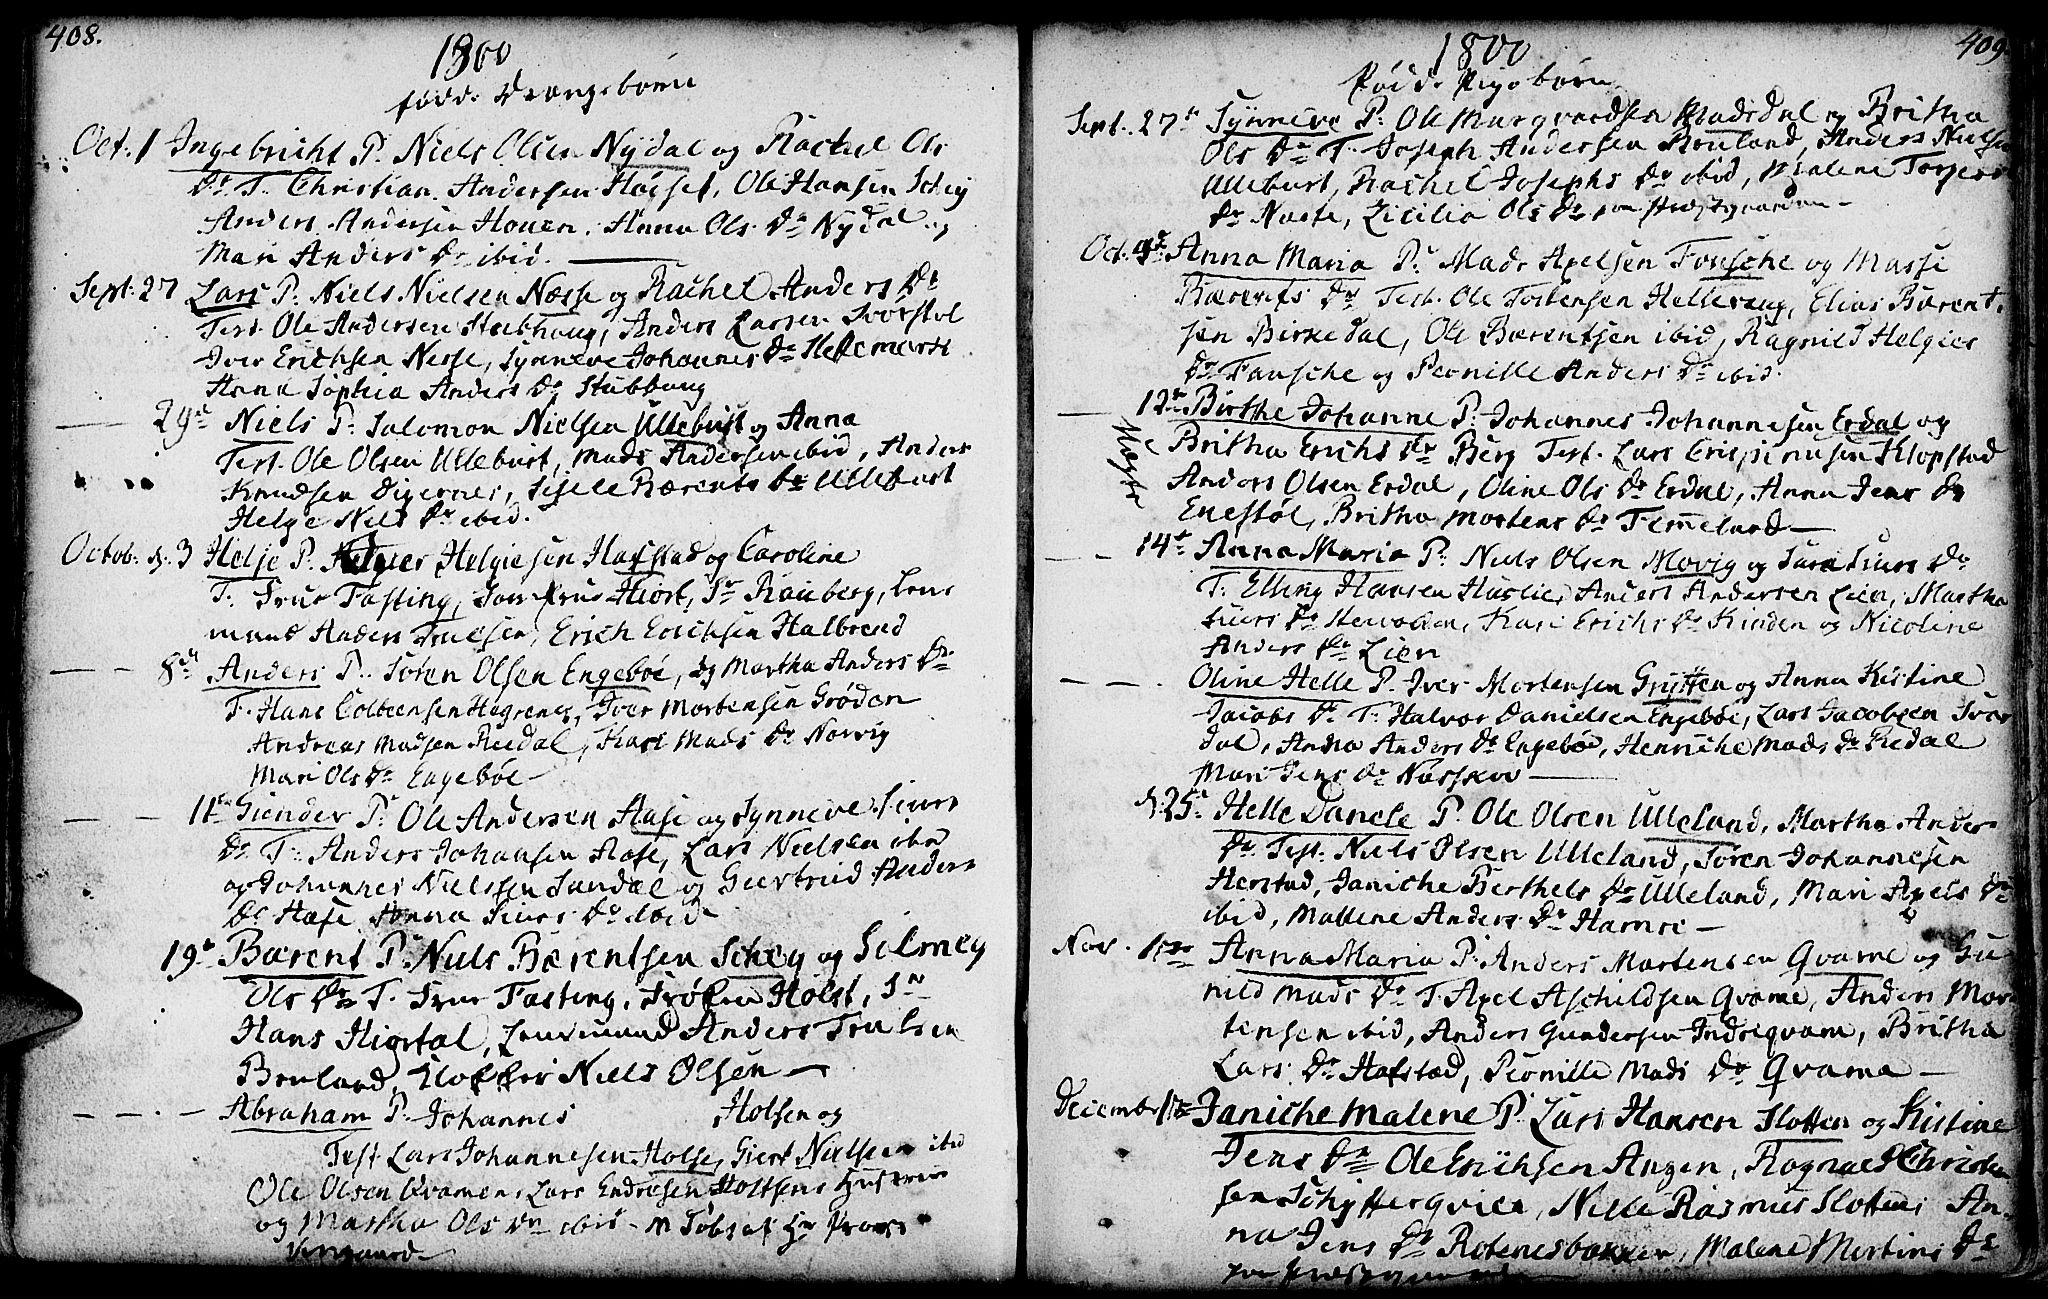 408.
1800
fødde Drængebørn
Oct. 1 Ingebricht P. Niels Olsen Nÿdal og Rachel Ols
Dr T. Christian Andersen Høgset, Ole Hansen Scheÿ
Anders Andersen Hoven, Anna Ols Dr Nÿdal
Mari Anders Dr ibid.
Sept. 27 Lars P. Niels Nielsen Næsse og Rachel Anders Dr
Test. Ole Andersen Stubhaug, Anders Larsen
Iver Erichsen Nesse, Synneve Johannes Dr
Anna Sophia Anders Dr Stubhaug
29de Niels P. Salomon Nielsen Ullebust og Anna
Test. Ole Olsen Ullebust, Mads Andersen ibid, Anders
Knudsen Digernes, Sisele Bærents Dr Ullebust
Helge Niels Dr ibid.
Octob. d. 3 Helje P. Helgier Helgiesen Hafstad og Caroline
T. Frue Fasting, Jomfrue Hiort, Sr Rauberg, Lens
mand Anders Truelsen, Erich Erichsen Halbrend
8de Anders P. Søren Olsen Engebøe, og Martha Anders Dr
T. Hans Colbeensen Hegrenes, Iver Mortensen Grøden
Andreas Madsen Reedal, Kari Mads Dr Norvig
Mari Ols Dr Engebøe
11te Giender P. Ole Andersen Hase og Synneve Siurs
Dr T. Anders Johansen Hase, Lars Nielsen ibid
og Johannes Nielssen Sundal og Giertrud Anders
Dr Hase Anna Siurs Dr ibid
19de Bærent P. Niels Bærentsen Scheÿ og Silmeÿ
Ols Dr T. Frue Fasting, Frøken Holst, Sr
Hans Hiortal, Lensmand Anders Truelsen
Bruland, Niels Olsen
Abraham P. Johannes Holsen og
Test Lars Johannesen Holse, Giert Nielsen ibid
Ole Olsen Qvamen, Lars Endresen Holtsens Hustrue
og Martha Ols Dr ibid

409.
1800
Fødde Pigebørn
Sept. 27de Synneve P. Ole Marqvardsen og Britha
Ols Dr T. Joseph Andersen Bruland, Anders Nielsen
Ullebust, Rachel Josephs Dr ibid, Malene Torgers
Dr Naste, Zicilia Ols Dr paa Præstgaarden
Oct. 4de Anna Maria P. Mads Axelsen Fousche og Massi
Bærents Dr Test. Ole Tostensen Hellevang, Elias Bærent
sen Birkedal, Ole Bærentsen ibid, Ragnild Helgies
Dr Fausche og Pernille Anders Dr ibid.
12te Birthe Johanne P. Johannes Johannesen Erdal og
Britha Erichs Dr Berg Test. Lars Crispinusen Klopstad
Anders Olsen Erdal, Oline Ols Dr Erdal, Anna Jens Dr
Enestøl, Britha Mortens Dr Femmeland
14de Anna Maria P. Niels Olsen Movig og Sara Siurs Dr
T. Elling Hansen Huslie, Anders Andersen Lien, Martha
Siurs Dr Kari Erichs Dr Kinden og Nicoline
Anders Dr Lien
Oline Helle P. Iver Mortensen Grytten og Anna Kistine
Jacobs Dr T. Halvor Danielsen Engebøe, Lars Jacobsen Svar
dal, Anna Anders Dr Engebøe, Henriche Mads Dr Redal
Mari Jens Dr Nasskov
d. 25de Helle Danele P. Ole Olsen Ulleland, Martha Anders
Dr Test. Niels Olsen Ulleland, Søren Johannesen
Herstad, Janiche Berthels Dr Ulleland, Mari Axels Dr
ibid, Mallene Anders Dr Hamre
Nov. Anna Maria P. Anders Martensen Qvame og Gu
nild Mads Dr T. Axel Aschildsen Qvame, Anders Mor
tensen ibid, Anders Gundersen Indreqvam, Britha
Lars Dr Hafstad, Pernille Mads Dr Qvame
December Janiche Malene P. Lars Hansen Slotten og Kistine
Jens Dr Ole Erichsen Angen, Ragnald Christen
sen Schÿtterqvien, Nille Rasmus Slotten, An
na Jens Dr Rotenesbakken, Malene Mortens Dr
paa Præstegaarden